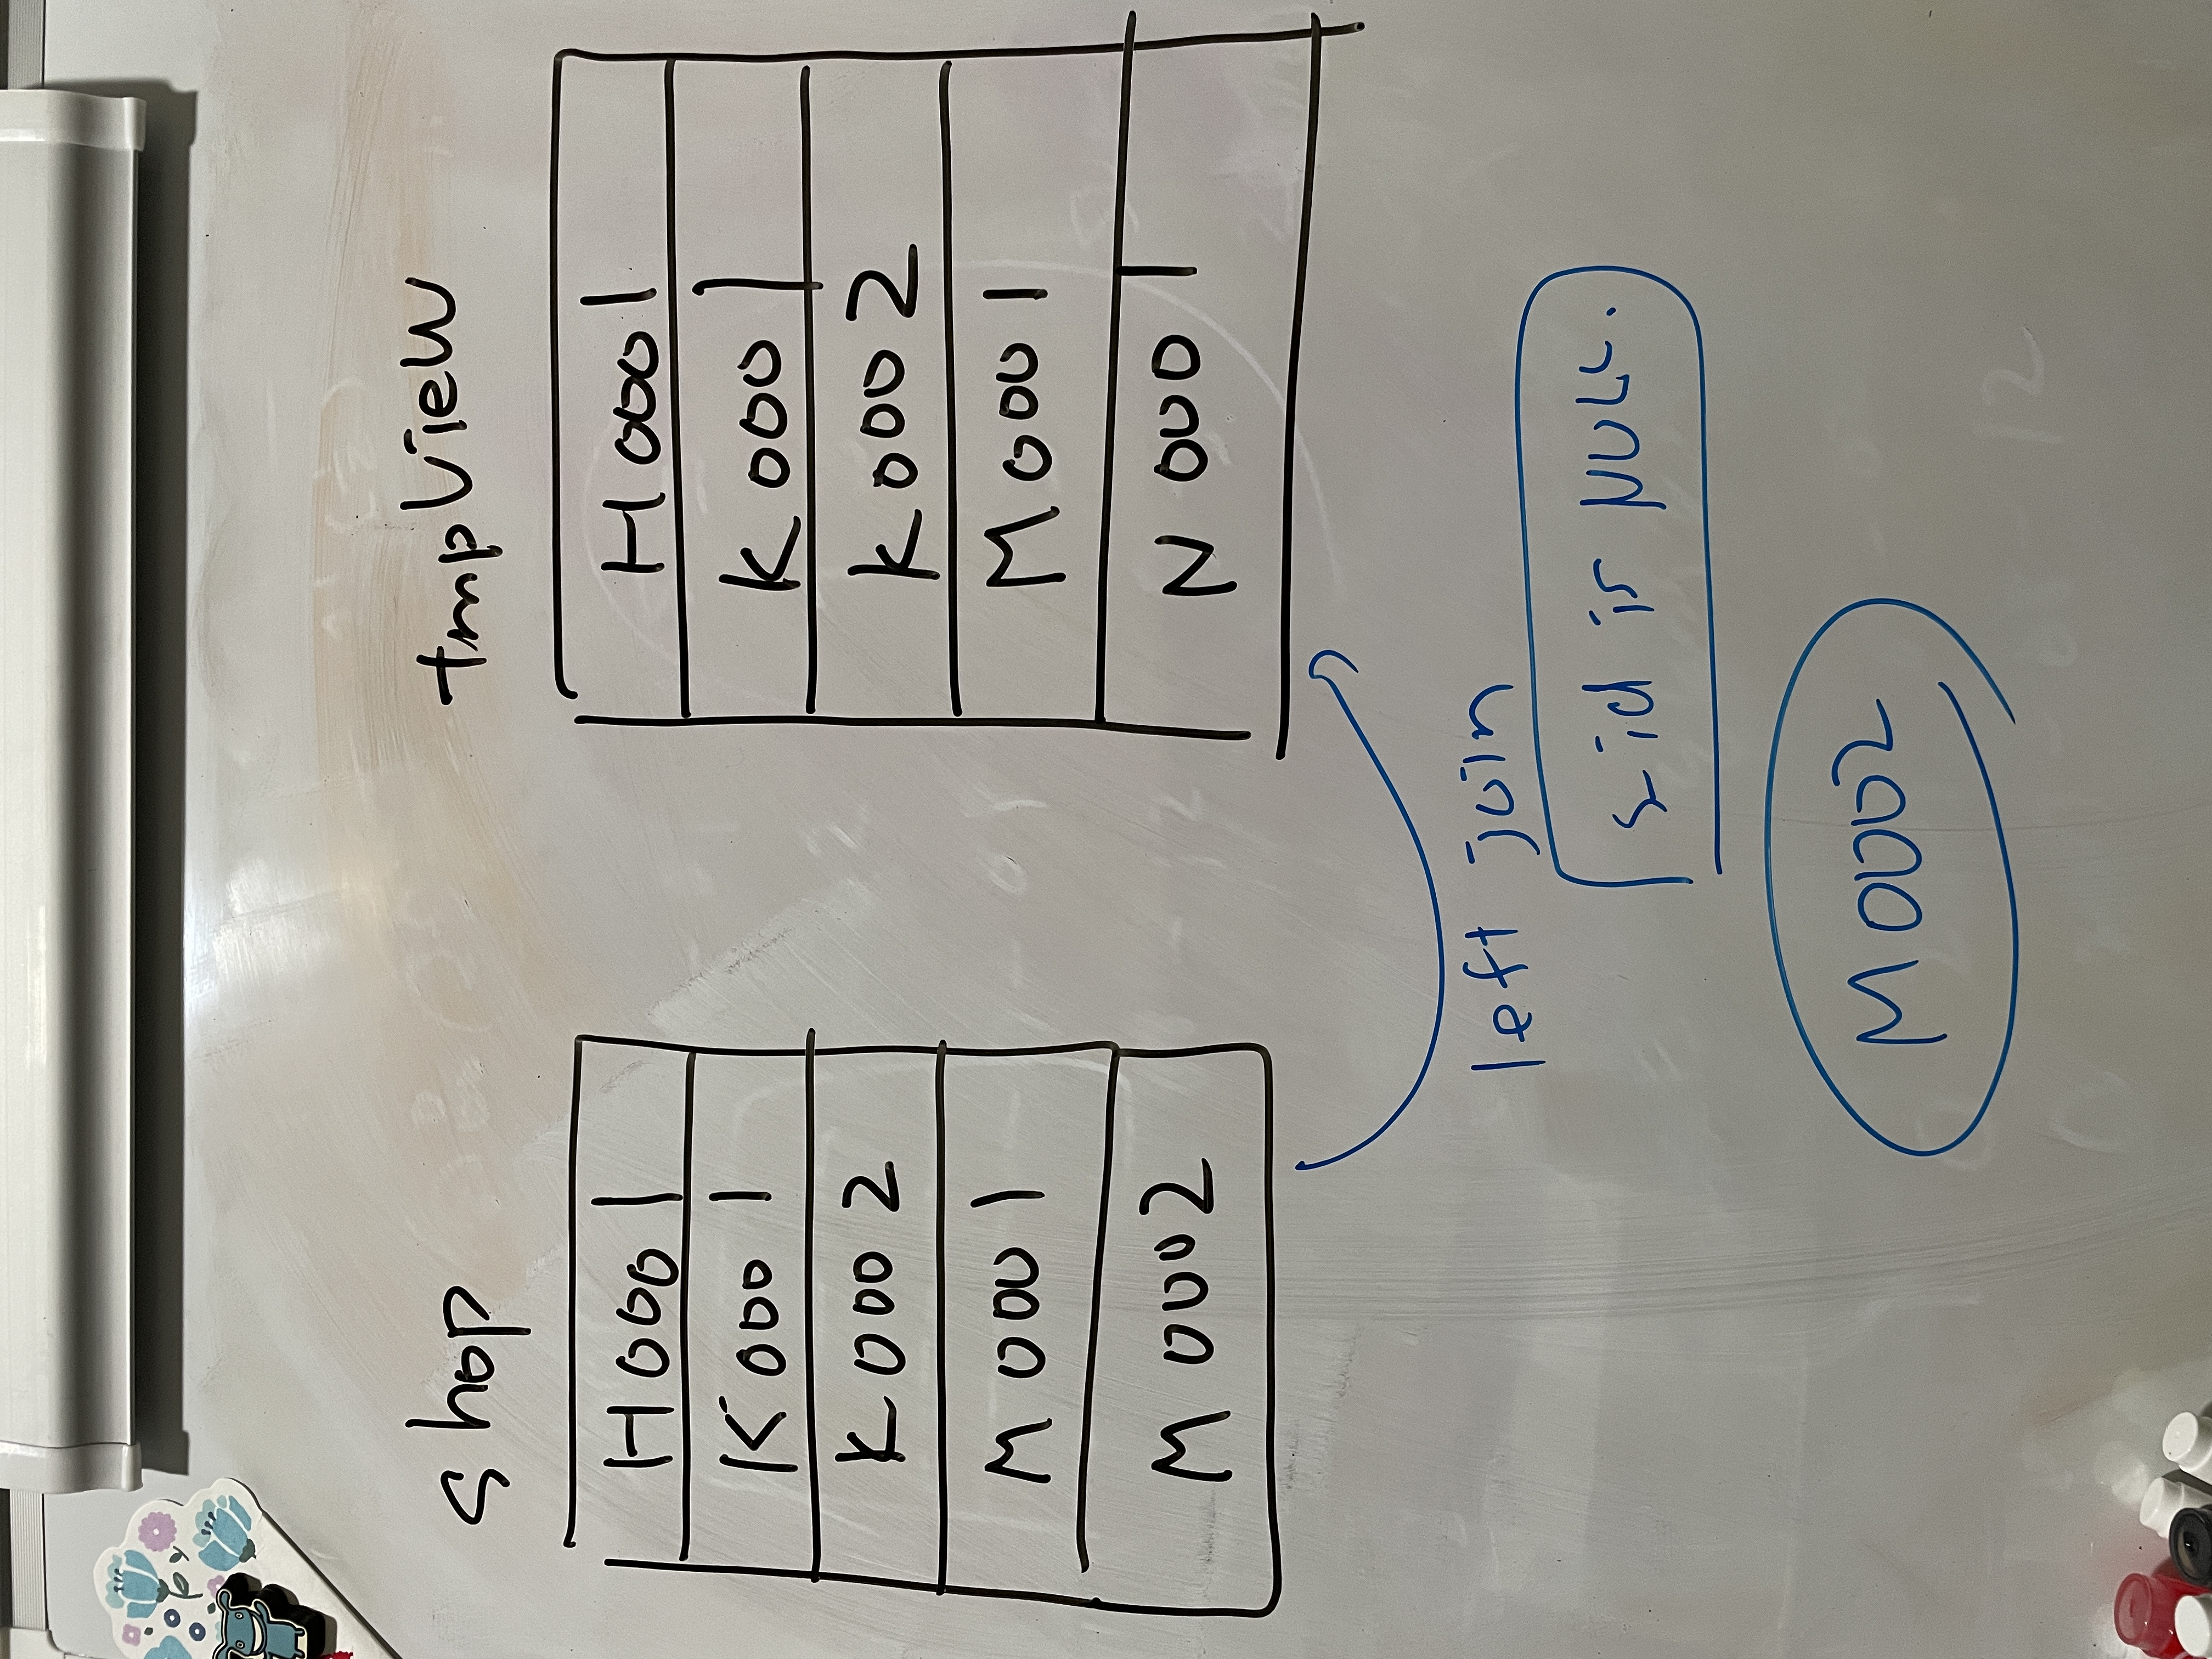 Shop
H0001
K0001
K0002
M0001
M0002
tmpView
H0001
K0001
K0002
M0001
N0001
left join
s-id is NULL.
M0002